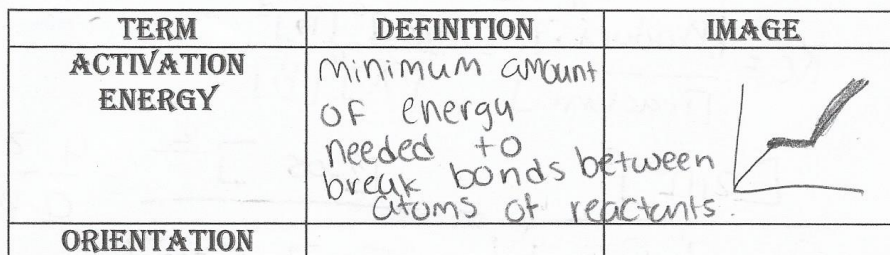 TERM DEFINITION IMAGE
ACTIVATION ENERGY
minimum amount
of energy
needed to
break bonds between
atoms of reactants.
ORIENTATION